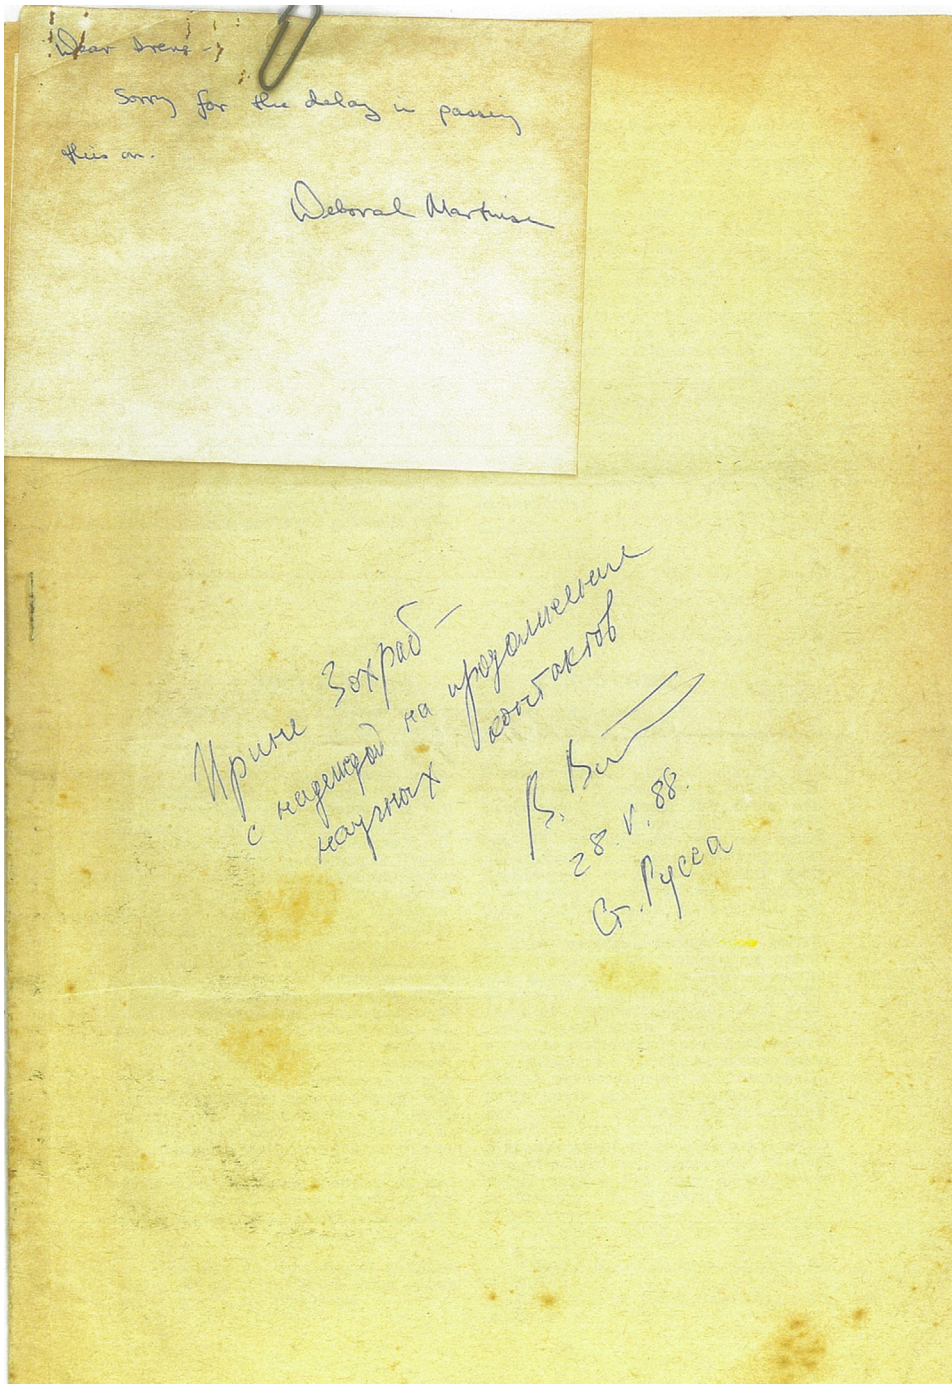 Dear Irene -
Sorry for the delay in passing
this on.
Deborah Martinsen
Ирине Зохраб -
с надеждой на продолжение
научных контактов
В.
28.V.88.
Ст. Русса